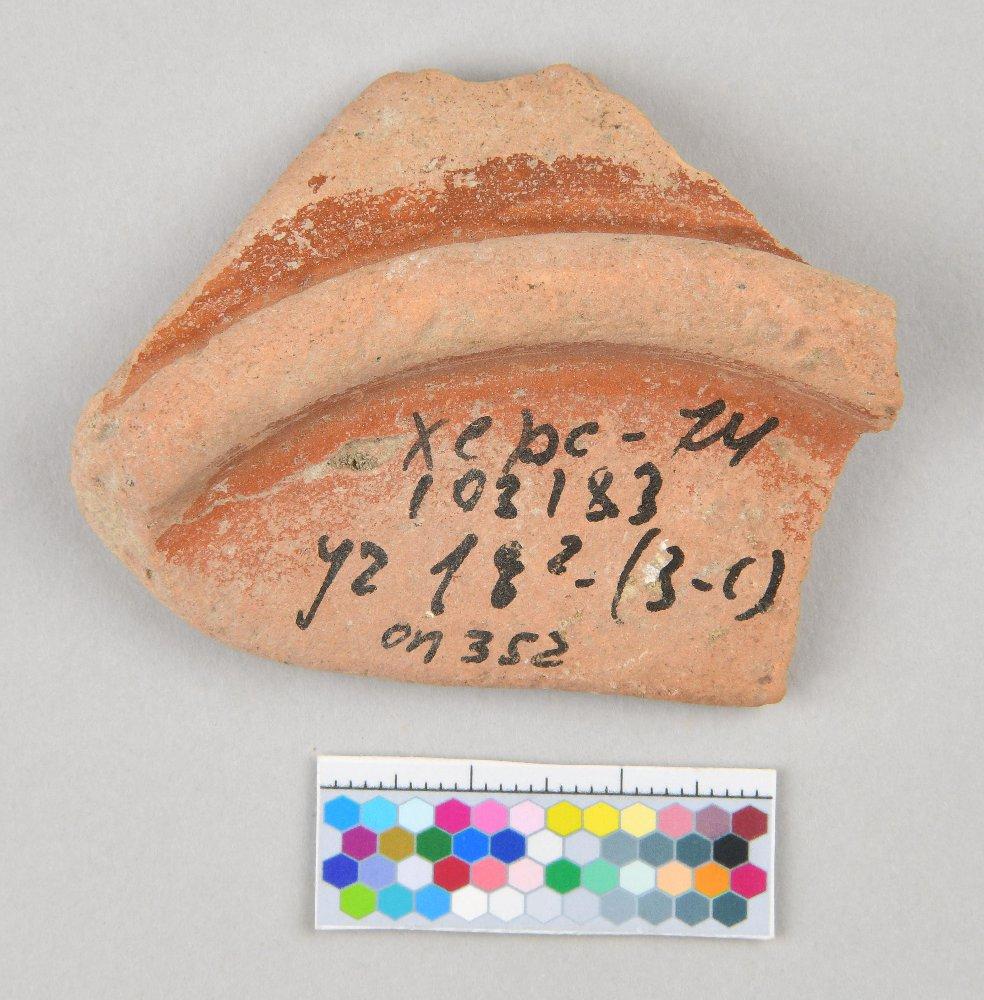 Херс-24
103183
уг 18²-(3-С)
оп 352